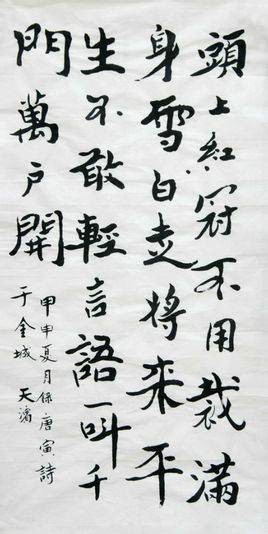 頭上紅冠不用裁滿
身雪白走將來平
生不敢輕言語一叫千
門萬戶開
甲申夏月保唐寅詩
于金城 天濤